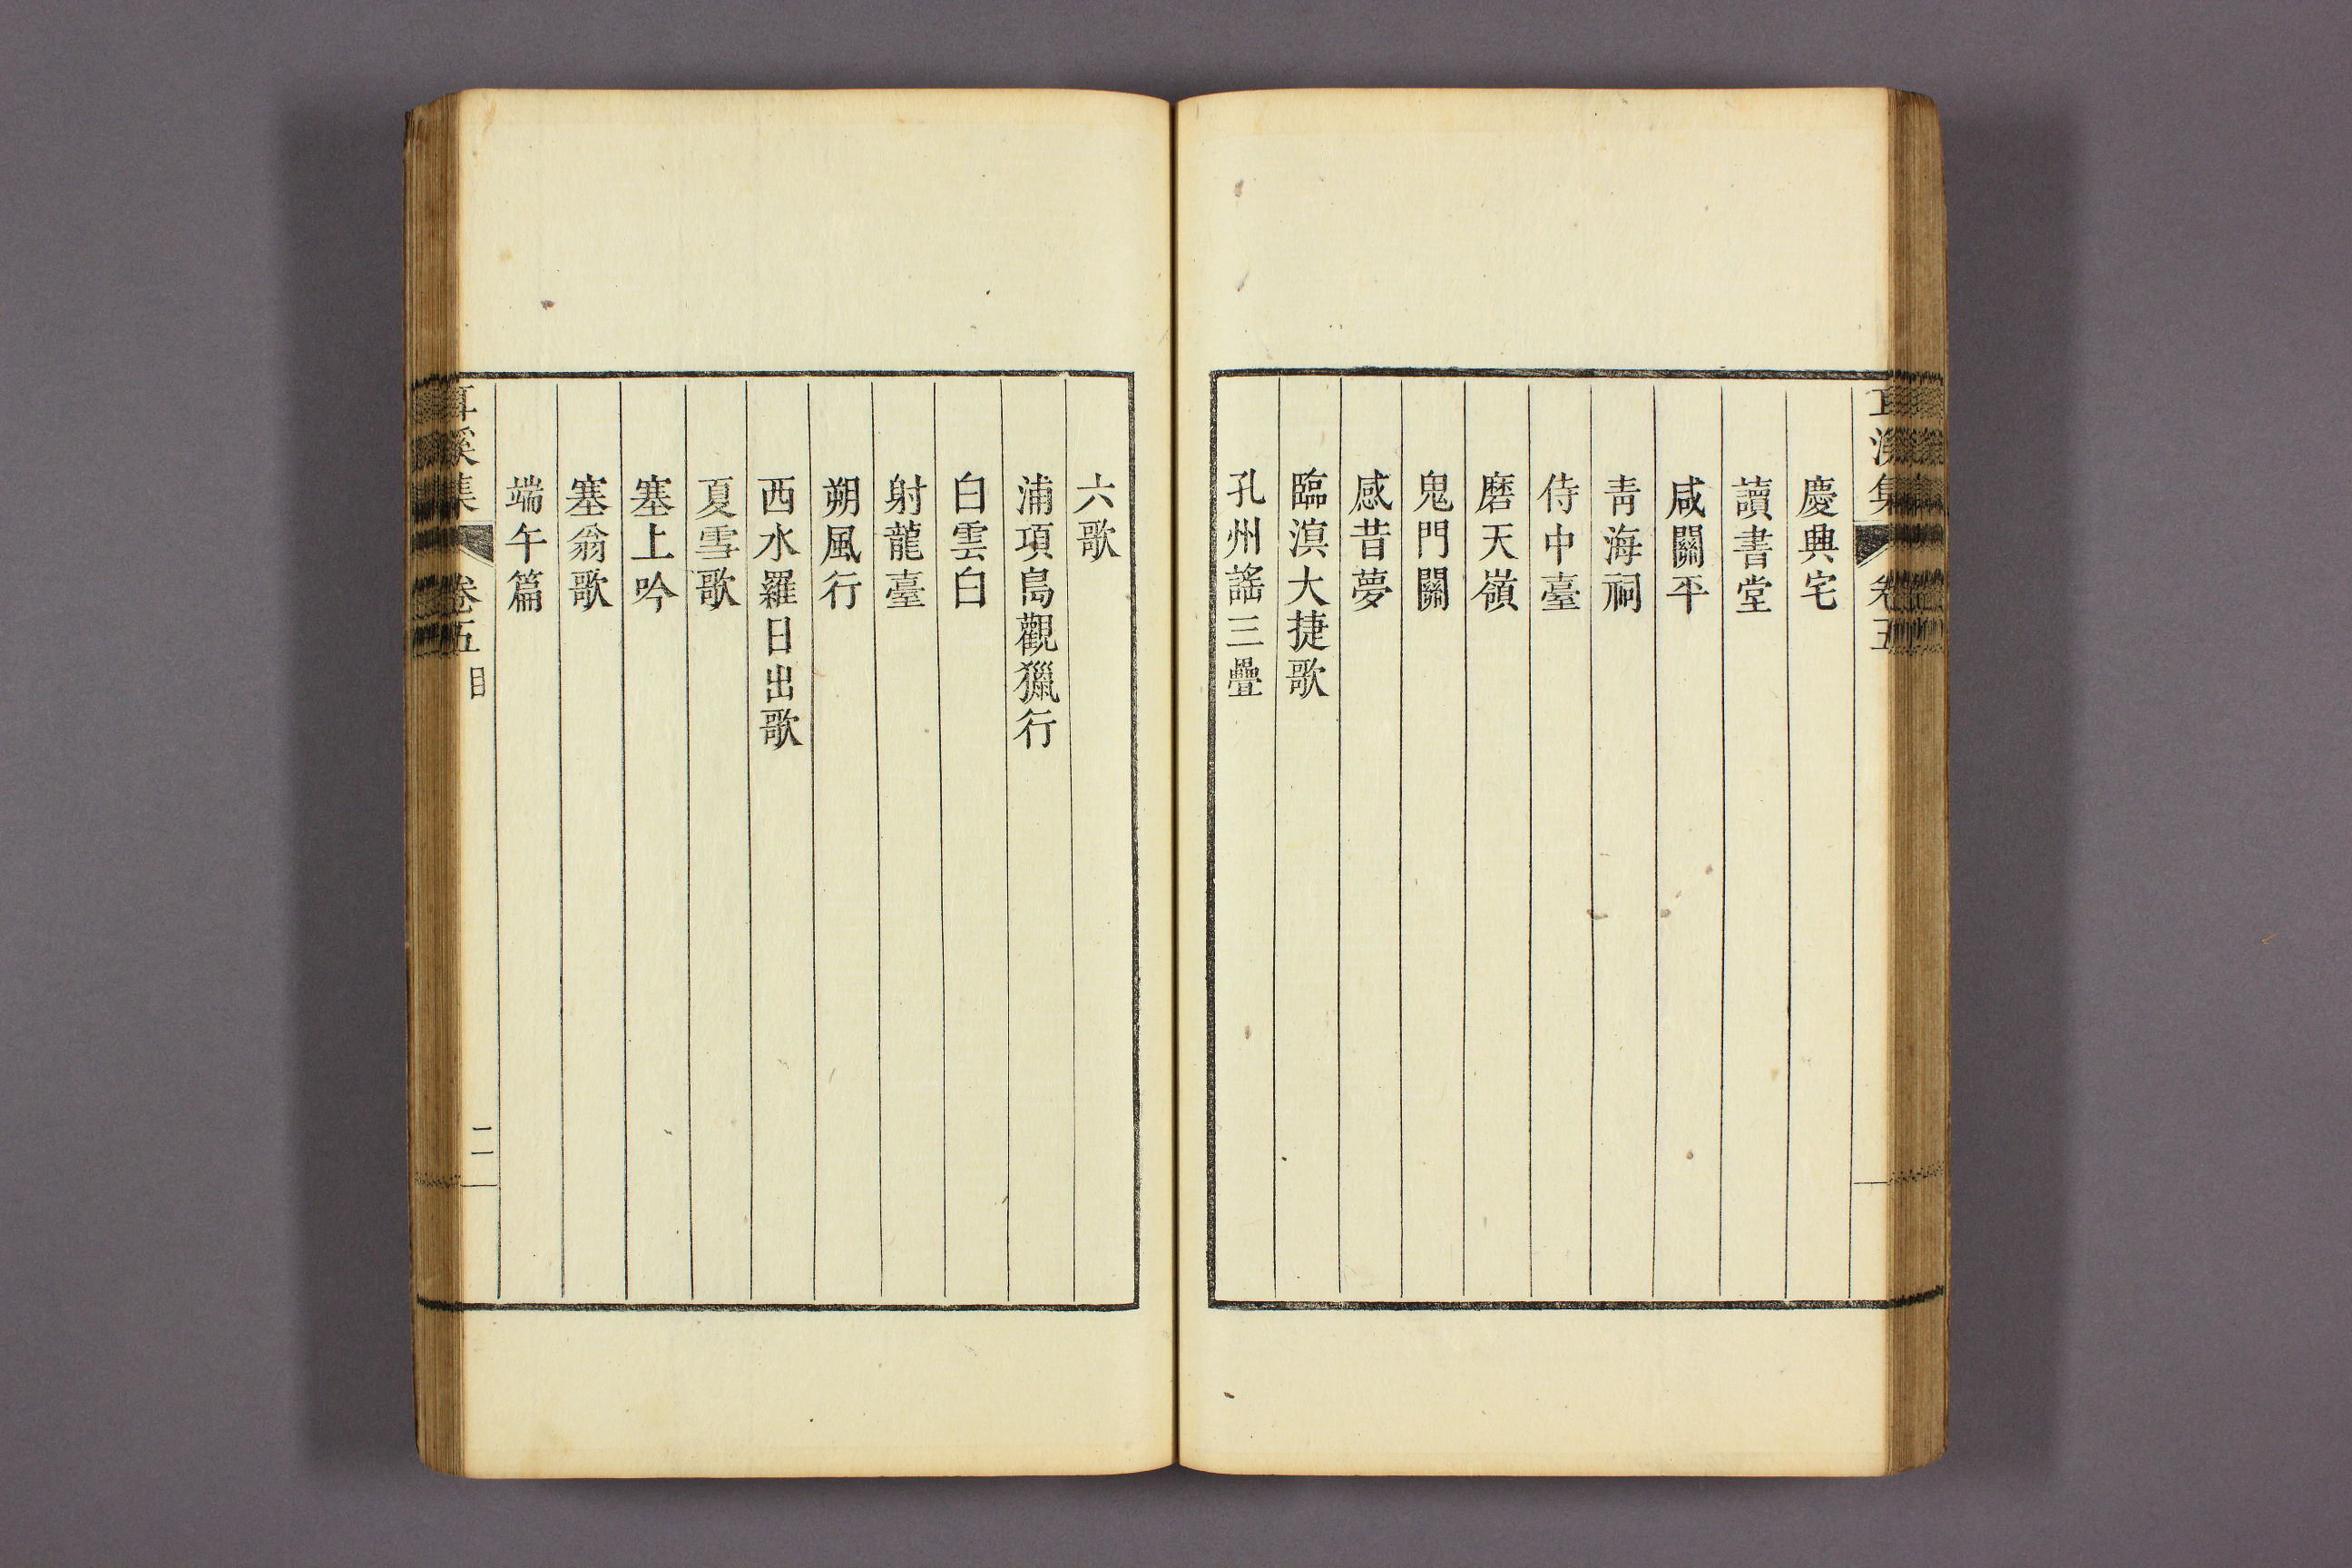 慶興宅
讀書堂
咸關平
靑海祠
侍中臺
磨天嶺
鬼門關
感昔夢
臨溟大捷歌
孔州謠三疊
六歌
浦項島觀獵行
白雲白
射龍臺
朔風行
西水羅日出歌
夏雪歌
塞上吟
塞翁歌
端午篇
耳溪集 卷五 目 二